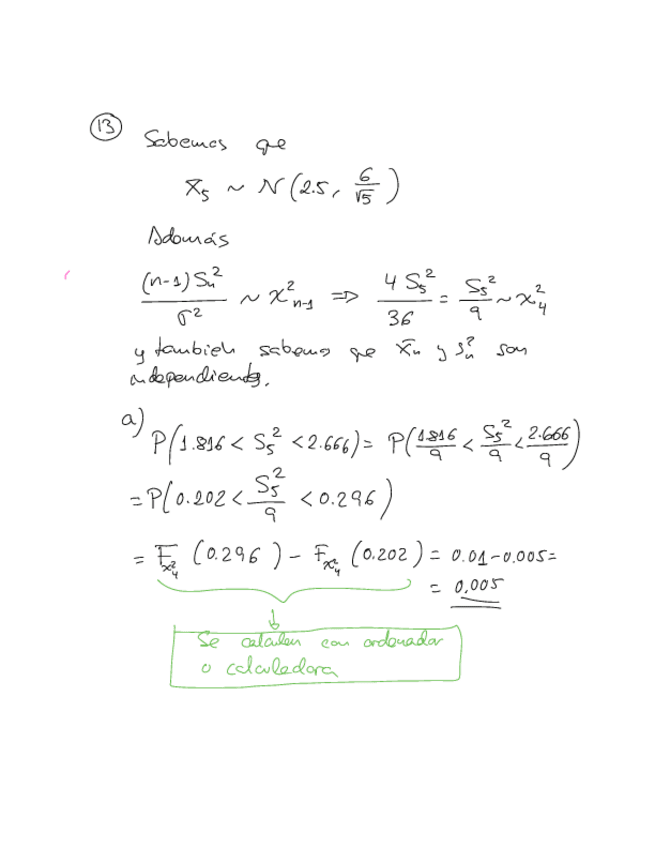 13
Sabemos que
X̄₅ ~ N(2.5, 6/√5)
Además
(n-1)Sₙ²/σ² ~ χ²ₙ₋₁ ⇒ 4S₅²/36 = S₅²/9 ~ χ²₄
y tambien sabemos que X̄ₙ y Sₙ² son
independientes.
a)
P(1.816 < S₅² < 2.666) = P(1.816/9 < S₅²/9 < 2.666/9)
= P(0.202 < S₅²/9 < 0.296)
= F_χ²₄ (0.296) - F_χ²₄ (0.202) = 0.01 - 0.005 =
= 0.005
Se calculan con ordenador
o calculadora